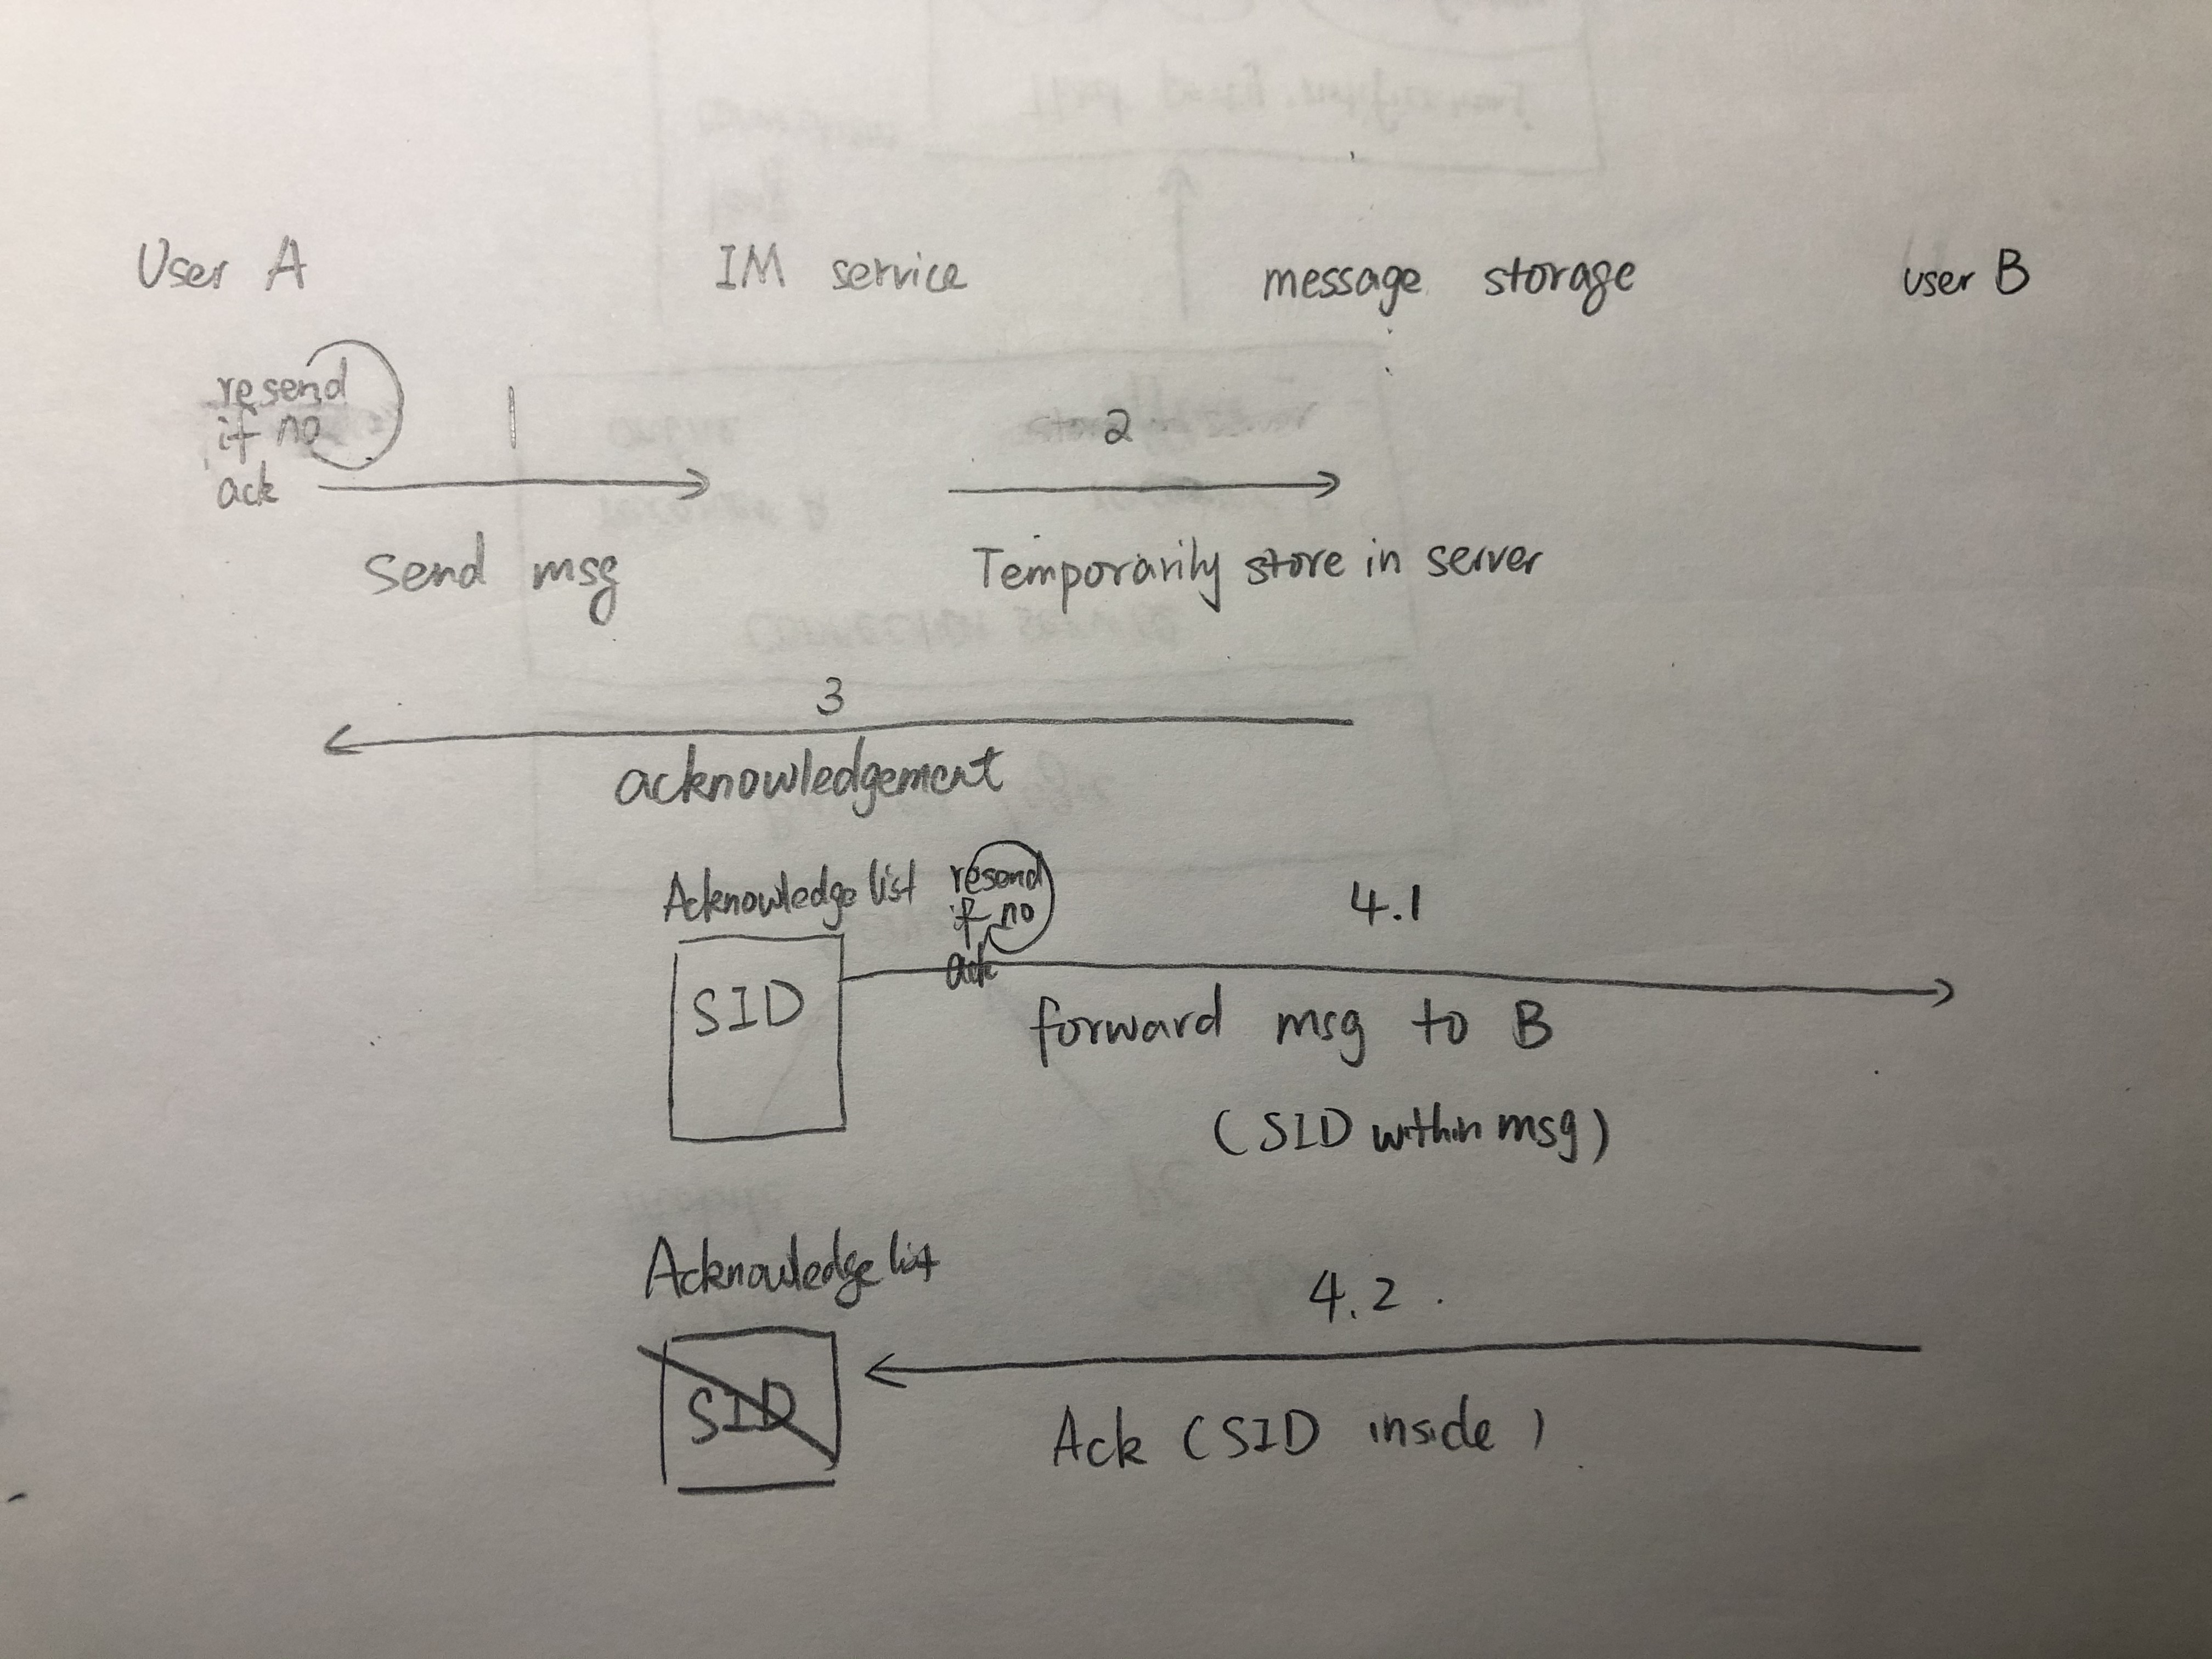 User A IM service message storage user B
resend
if no
ack
1
2
Send msg
Temporarily store in server
3
acknowledgement
Acknowledge list
resend
if no
ack
4.1
SID
forward msg to B
(SID within msg)
Acknowledge list
4.2
SID
Ack (SID inside)